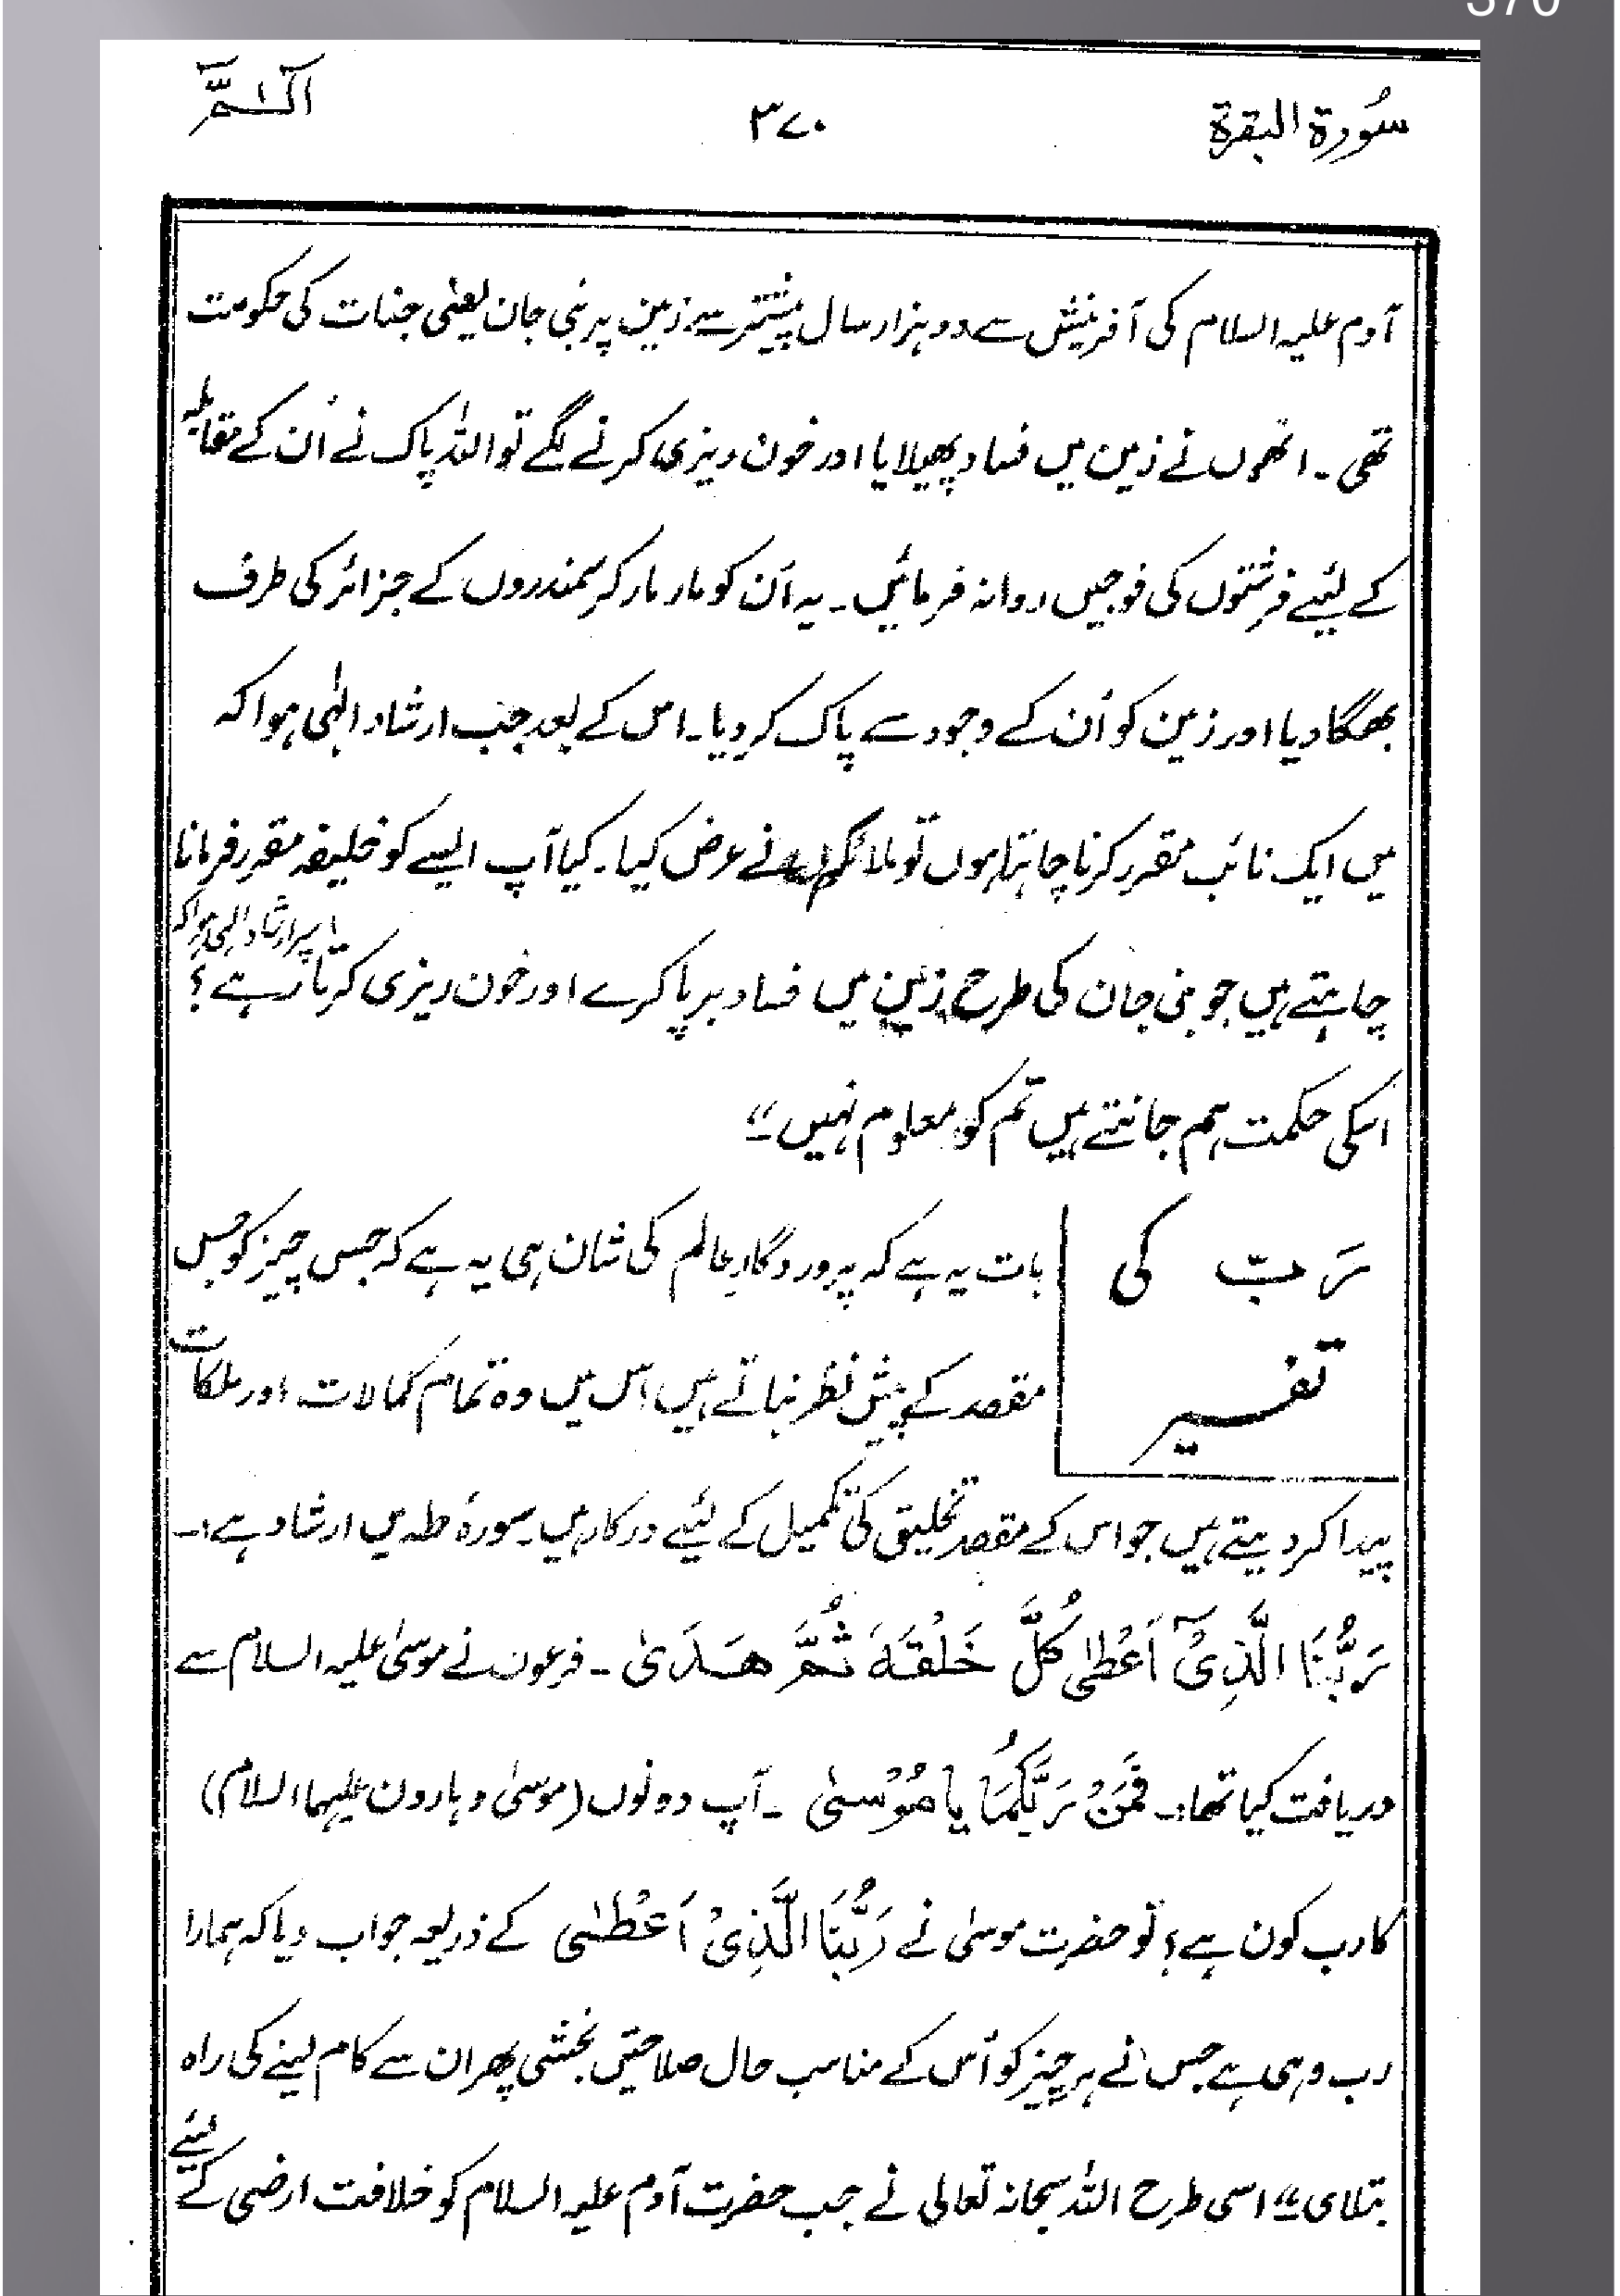 370
سُورة البقرة ۳۷۰ آلـٓـمّٓ
آدم علیہ السلام کی آفرینش سے دو ہزار سال پیشتر سے زمین پر بنی جان یعنی جنات کی حکومت
تھی ۔ انھوں نے زمین میں فساد پھیلایا اور خون ریزی کرنے لگے تو اللہ پاک نے اُن کے مقابلہ
کے لئیے فرشتوں کی فوجیں روانہ فرمائیں ۔ یہ اُن کو مار مار کر سمندروں کے جزائر کی طرف
بھگا دیا اور زمین کو اُن کے وجود سے پاک کر دیا ۔ اس کے بعد جب ارشاد الٰہی ہوا کہ
میں ایک نائب مقرر کرنا چاہتا ہوں تو ملائکہ نے عرض کیا ۔ کیا آپ ایسے کو خلیفہ مقرر فرمانا
چاہتے ہیں جو بنی جان کی طرح زمین میں فساد برپا کرے اور خون ریزی کرتا رہے ؟ اسپر ارشاد الٰہی ہوا کہ
اسکی حکمت ہم جانتے ہیں تم کو معلوم نہیں ۔"
رَبّ کی
تفسیر
بات یہ ہے کہ پروردگارِ عالم کی شان ہی یہ ہے کہ جس چیز کو جس
مقصد کے پیش نظر بناتے ہیں اس میں وہ تمام کمالات اور ملکات
پیدا کر دیتے ہیں جو اس کے مقصد تخلیق کی تکمیل کے لئیے درکار ہیں ۔ سورۂ طہ میں ارشاد ہے :۔
رَبُّنَا الَّذِیْٓ اَعْطٰی کُلَّ خَلْقَہٗ ثُمَّ ھَدَیٰ ۔ فرعون نے موسیٰ علیہ السلام سے
دریافت کیا تھا :۔ فَمَنْ رَبُّکُمَا یا مُوْسیٰ ۔ آپ دونوں (موسیٰ و ہارون علیہما السلام)
کا رب کون ہے ؟ تو حضرت موسیٰ نے رَبُّنَا الَّذِیْ اَعْطٰی کے ذریعہ جواب دیا کہ ہمارا
رب وہی ہے جس نے ہر چیز کو اُس کے مناسب حال صلاحیتں بخشی پھر ان سے کام لینے کی راہ
بتلای ۔" اسی طرح اللہ سبحانہ تعالی نے جب حضرت آدم علیہ السلام کو خلافت ارضی کے لئیے